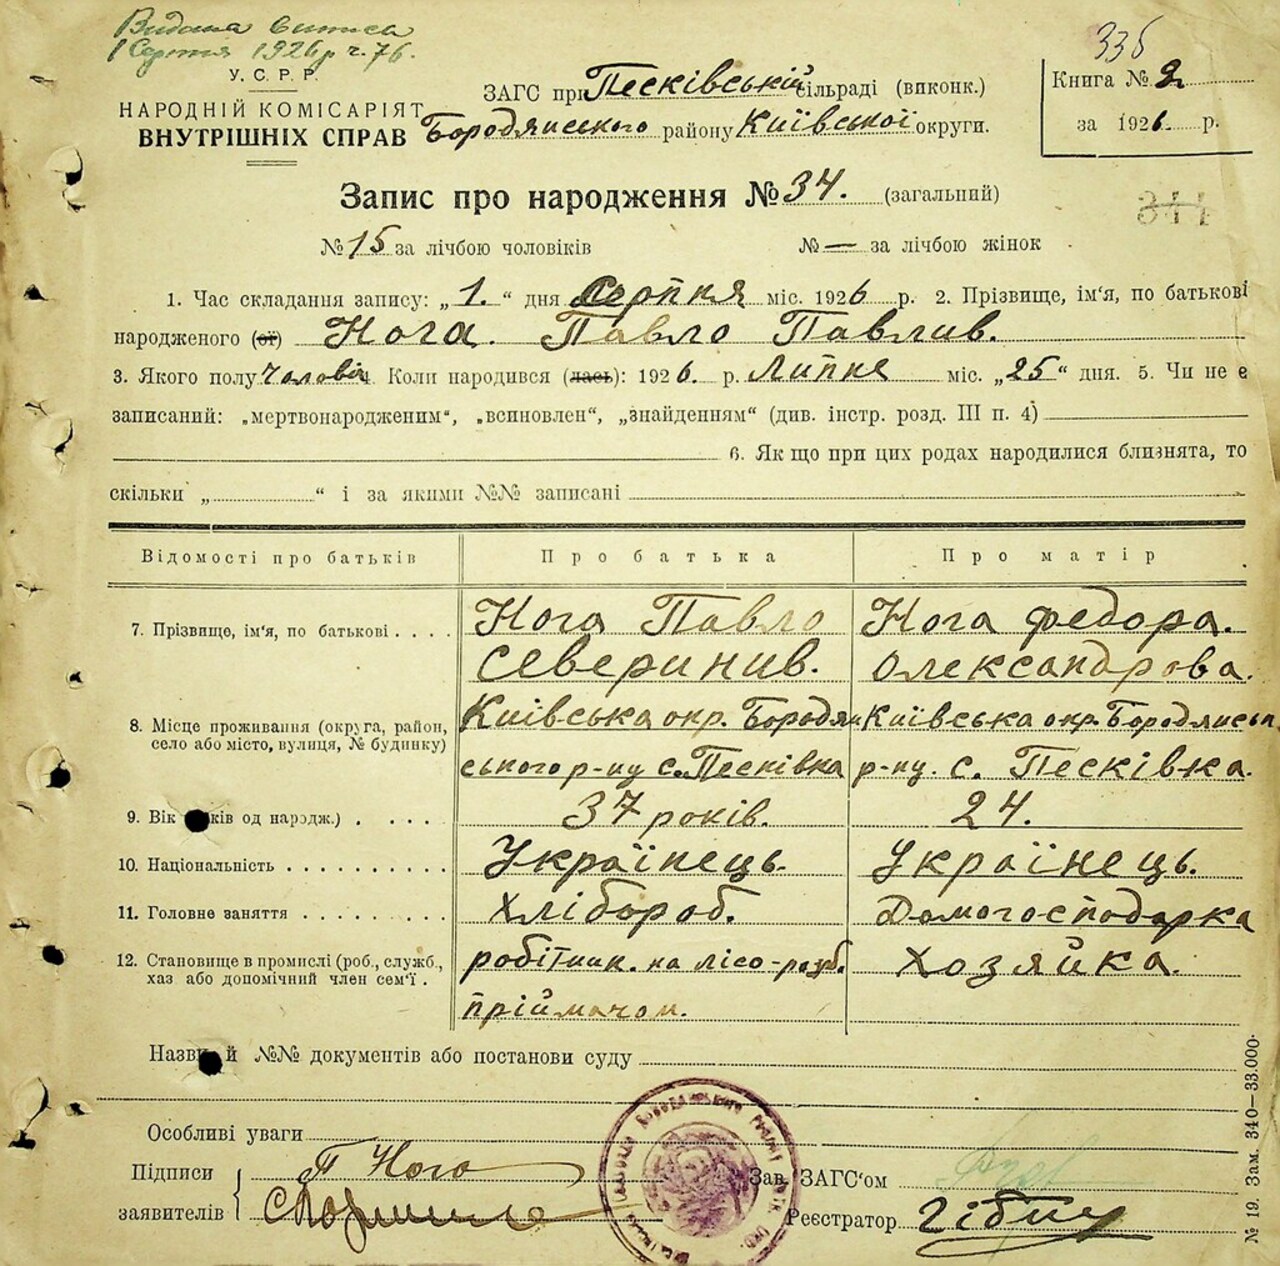 Видана виписа
1 Серпня 1926 р. ч. 76.
336
У. С. Р. Р.
НАРОДНІЙ КОМІСАРІЯТ
ВНУТРІШНІХ СПРАВ
ЗАГС при Песківській сільраді (виконк.)
Бородянського району Київської округи.
Книга № 2
за 1926. р.
Запис про народження № 34. (загальний)
344
№ 15 за лічбою чоловіків № — за лічбою жінок
1. Час складання запису: „1.“ дня Серпня міс. 1926 р. 2. Прізвище, ім'я, по батькові
народженого (ої) Нога. Павло Павлив.
3. Якого полу чоловіч 4. Коли народився (лась): 1926. р. Липня міс. „25“ дня. 5. Чи не є
записаний: „мертвонародженим“, „всиновлен“, „знайденням“ (див. інстр. розд. III п. 4)
6. Як що при цих родах народилися близнята, то
скільки „ “ і за якими №№ записані
Відомості про батьків Про батька Про матір
7. Прізвище, ім'я, по батькові . . . . Нога Павло Нога Федора.
Северинив. Олександрова.
8. Місце проживання (округа, район, Київська окр. Бородян Київська окр. Бородянськ
село або місто, вулиця, № будинку) ського р-ну с. Песківка р-ну. с. Песківка.
9. Вік ків од народж.) . . . . . 37 років. 24.
10. Національність . . . . . . . . . . Українець. Українець.
11. Головне заняття . . . . . . . . . Хлібороб. Домогосподарка
12. Становище в промислі (роб., служб., робітник. на лісо-розб. Хозяйка.
хаз або допомічний член сем'ї . приймачом.
Назви й №№ документів або постанови суду
Особливі уваги
Підписи П Нога
заявителів
Зав. ЗАГС'ом
Реєстратор
№ 19. Зам. 340—33.000·